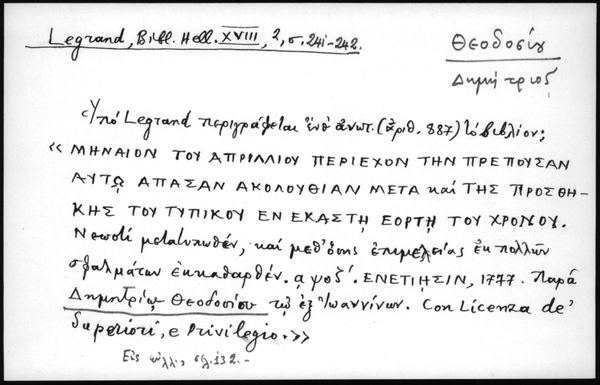 Legrand, Bibl. Hell. XVIII, 2, σ. 241-242.
Θεοδοσίου
Δημήτριος
Ὑπό Legrand περιγράφεται ἐνθ' ἀνωτ. (ἀριθ. 887) τό βιβλίον:
« ΜΗΝΑΙΟΝ ΤΟΥ ΑΠΡΙΛΛΙΟΥ ΠΕΡΙΕΧΟΝ ΤΗΝ ΠΡΕΠΟΥΣΑΝ
ΑΥΤῼ ΑΠΑΣΑΝ ΑΚΟΛΟΥΘΙΑΝ ΜΕΤΑ καί ΤΗΣ ΠΡΟΣΘΗ-
ΚΗΣ ΤΟΥ ΤΥΠΙΚΟΥ ΕΝ ΕΚΑΣΤῌ ΕΟΡΤῌ ΤΟΥ ΧΡΟΝΟΥ.
Νεωστί μετατυπωθέν, καί μεθ' ὅσης ἐπιμελείας ἐκ πολλῶν
σφαλμάτων ἐκκαθαρθέν. αψοζ'. ΕΝΕΤΙΗΣΙΝ, 1777. Παρά
Δημητρίῳ Θεοδοσίου τῷ ἐξ Ἰωαννίνων. Con Licenza de'
Superiori, e Privilegio.»
Εἰς φύλλ., σελ. 132.-